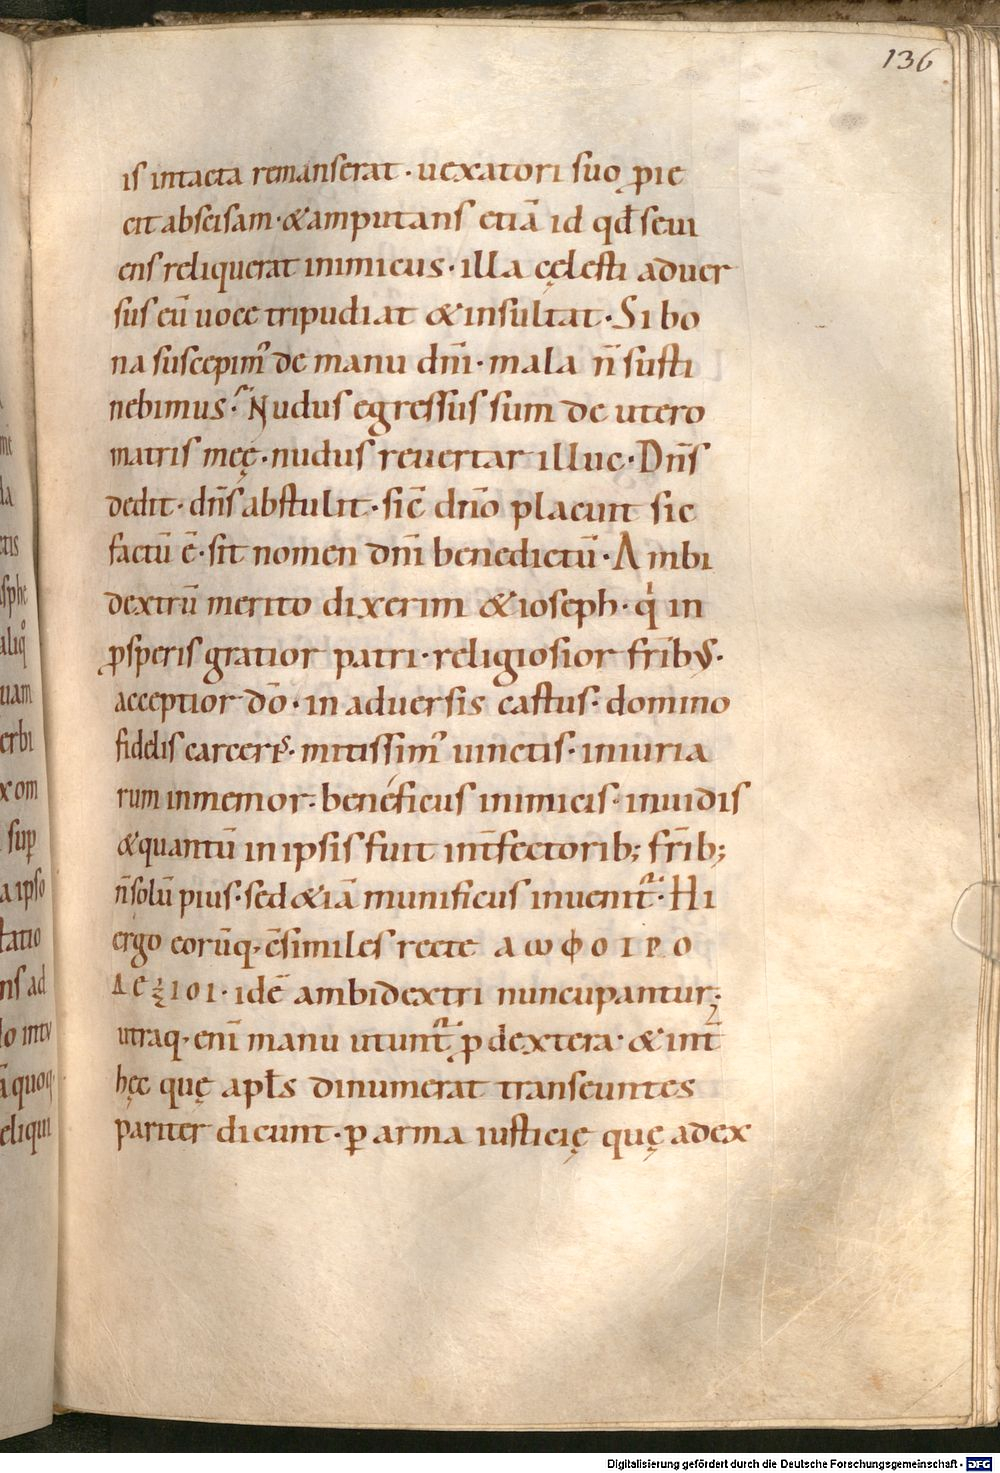 136
is intacta remanserat · uexatori suo ꝓie
cit abscisam · &amputans etiā id qđ seui
ens reliquerat inimicus · illa cęlesti aduer
sus eū uoce tripudiat & insultat · Si bo
na suscepim᾽ de manu dn̄i · mala n̄ susti
nebimus · Nudus egressus sum de utero
matris meę · nudus reuertar illuc · Dn̄s
dedit · dn̄s abstulit · sic̄ dn̄o placuit sic
factū ē · sit nomen dn̄i benedictū · Ambi
dextrū merito dixerim & ioseph · qi in
ꝓsperis gratior patri · religiosior fr̄ibus ·
acceptior dō · in aduersis castus · domino
fidelis carceris · mitissim᾽ uinctis · iniuria
rum inmemor · beneficus inimicis · inuidis
& quantū in ipsis fuit int̄fectorib; fr̄ib;
n̄ solū pius · sed &iā munificus inuenit᷒ · Hi
ergo eorūq, c̄similes recte ΑΩΦΟΙΡΟ
ΔΕΞΙΟΙ · idē ambidextri nuncupantur ·
utraq, eni᷒ manu utunt᷒ ꝓ dextera · & int̄
hęc quę apłs dinumerat transeuntes
pariter dicunt · ꝑ arma iusticię quę adex
is
Digitalisierung gefördert durch die Deutsche Forschungsgemeinschaft - DFG